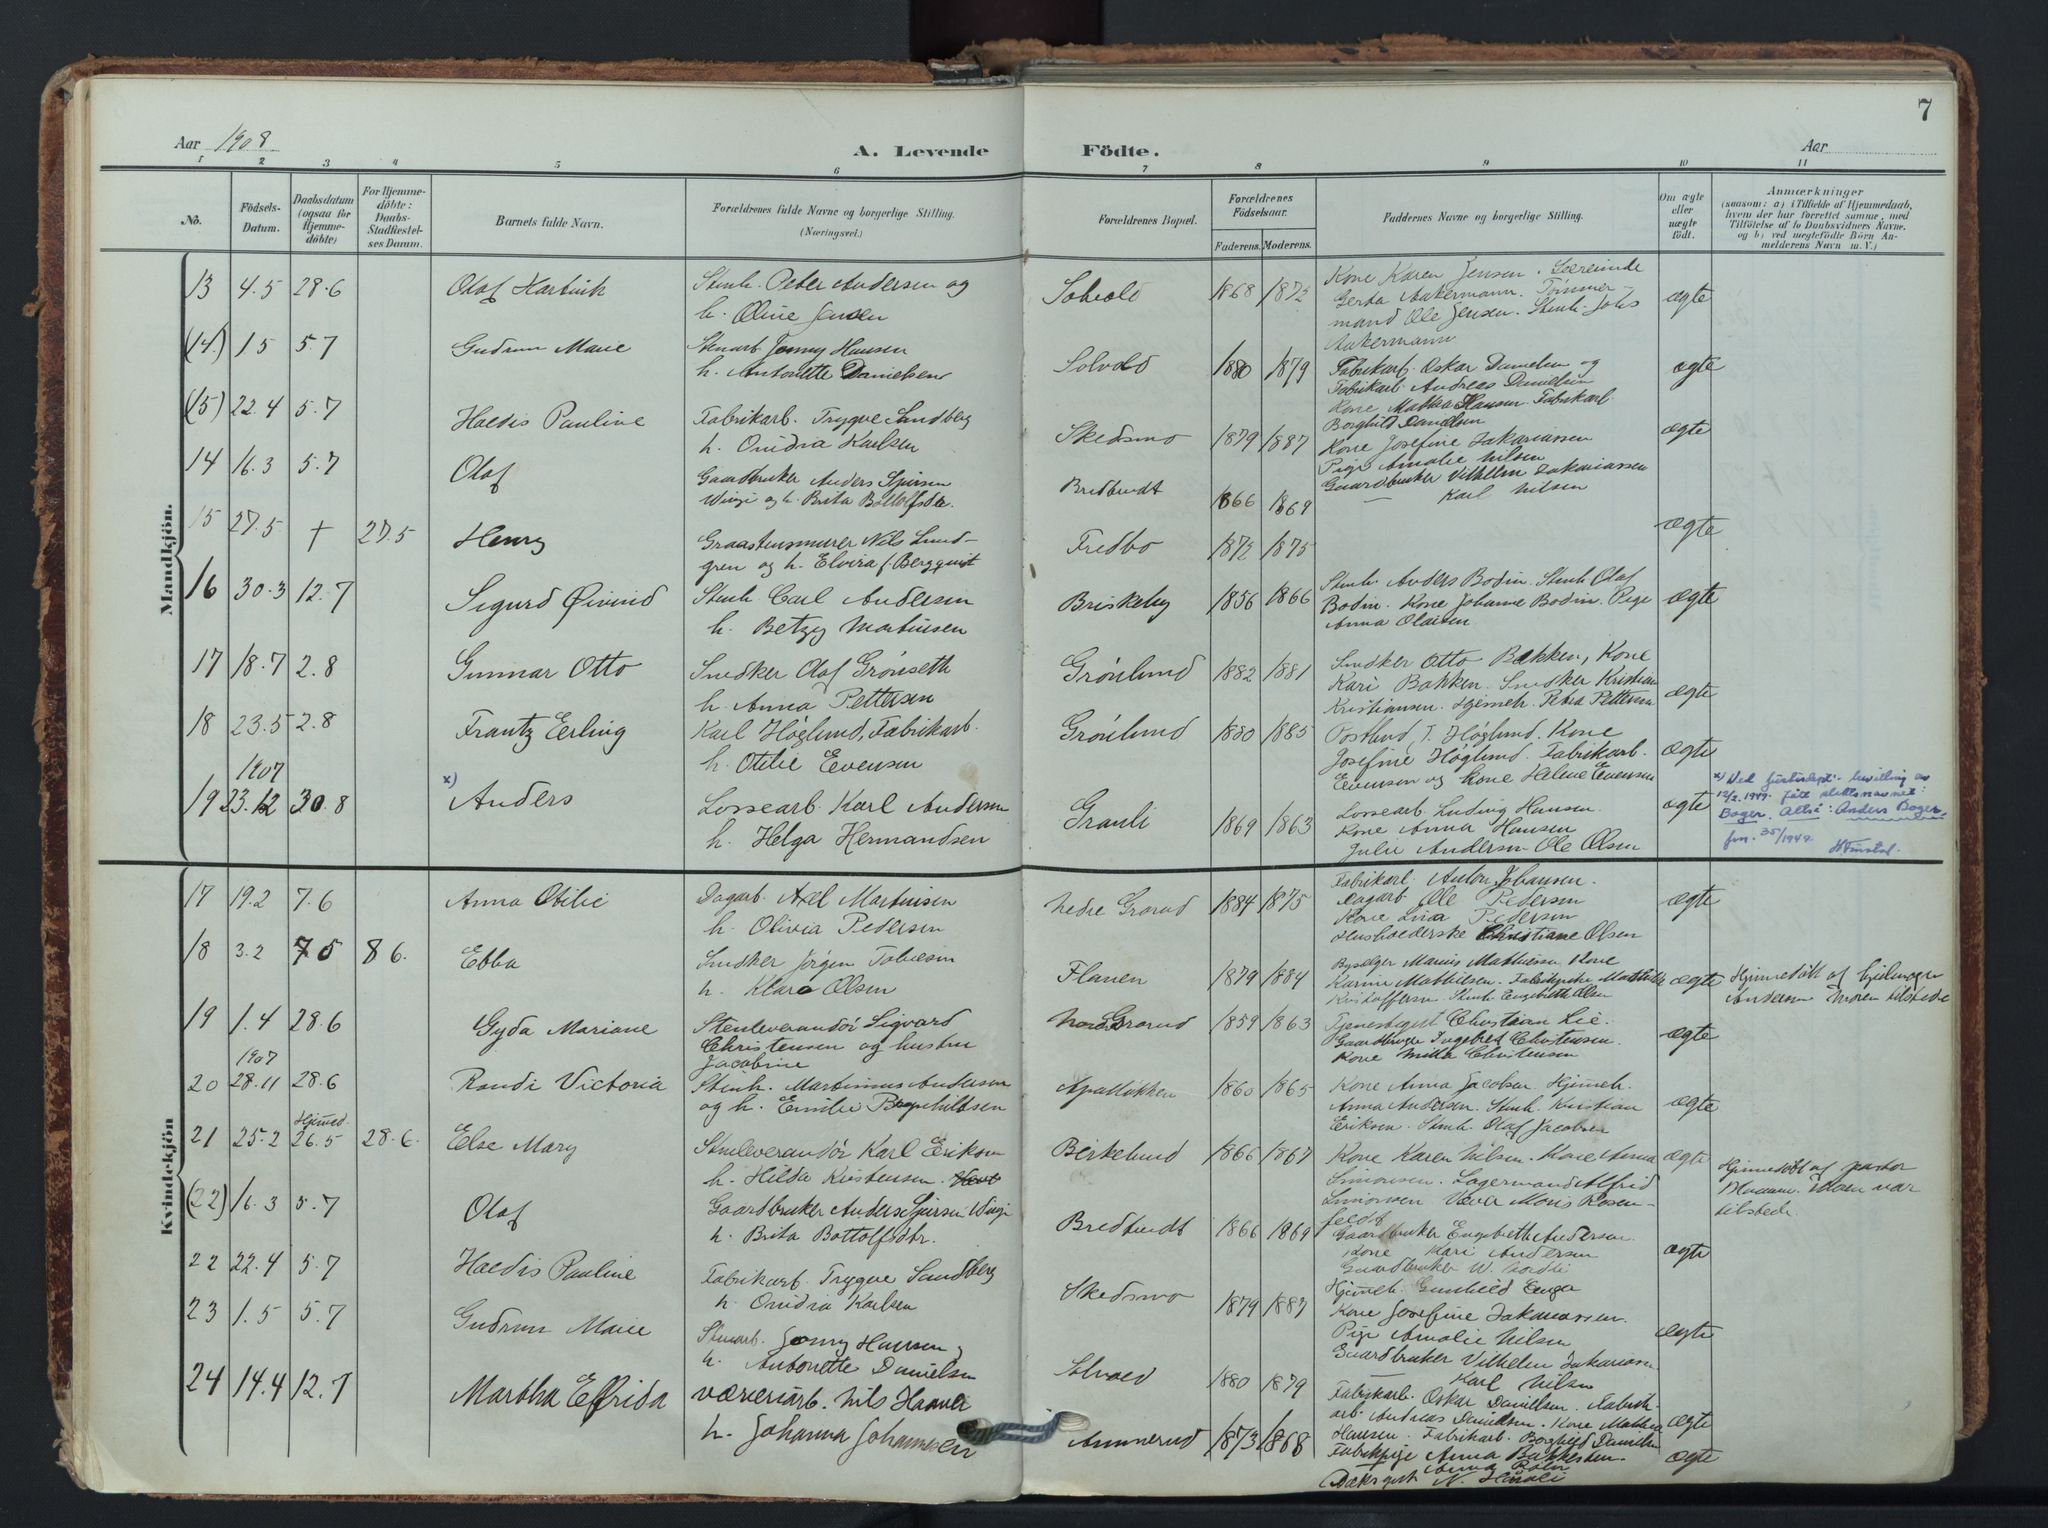 7
Aar 1908
A. Levende
Födte.
Aar
1 2 3 4 5 6 7 8 9 10 11
No.
Födsels-Datum.
Daabsdatum (ogsaa for Hjemme-döbte)
For Hjemme-döbte: Daabs-Stadfæstel-ses Datum.
Barnets fulde Navn.
Forældrenes fulde Navne og borgerlige Stilling. (Næringsvei.)
Forældrenes Bopæl.
Forældrenes Födselsaar. Faderens. Moderens.
Faddernes Navne og borgerlige Stilling.
Om ægte eller uægte födt.
Anmærkninger
(saasom: a) i Tilfælde af Hjemmedaab,
hvem der har forrettet samme, med
Tilföielse af to Daabsvidners Navne.
og b) ved uægtefödte Börn An-
melderens Navn m. V.)
Mandkjön.
13 4.5 28.6 Olaf Hartvik Stenh. Peter Andersen og
h. Oline Jensen Solvold 1868 1872 Kone Karen Jensen.
Gerda Aakermann. Tømmer-
mand Ole Jensen. Stenh. Johs
Aakermann ægte
(14.) 1.5 5.7 Gudrun Marie Stenarb. Jonny Hansen
h. Antonette Danielsen Solvold 1880 1879 Fabrikarb. Oskar Danielsen og
Fabrikarb. Andreas Danielsen
Kone Mathea Hansen. Fabrikarb.
Borghild Danielsen ægte
(15) 22.4 5.7 Haldis Pauline Fabrikarb. Trygve Sandberg
h. Ovidia Karlsen Skedsmo 1879 1887 Kone Josefine Zakariassen
Pige Amalie Nilsen
Gaardbruker Vilhelm Zakariassen
— Karl Nilsen ægte
14 16.3 5.7 Olaf Gaardbruker Anders Sjursen
Winje og h. Brita Bottolfsdtr. Bredtvedt 1866 1869
15 27.5 † 27.5 Henry Graastensmurer Nils Lund-
gren og h. Elvira f. Bergquist Fredbo 1872 1875 ægte
16 30.3 12.7 Sigurd Øivind Stenh. Carl Andersen
h. Betzy Martinsen Briskeby 1856 1866 Stenh. Anders Bodin. Stenh. Olaf
Bodin. Kone Johanne Bodin. Pige
Anna Olaisen ægte
17 18.7 2.8 Gunnar Otto Snedker Olaf Grønseth
h. Anna Pettersen Grønlund 1882 1881 Snedker Otto Bakken, Kone
Kari Bakken. Snedker Kristian
Kristiansen. Hjemeh. Petra Pettersen ægte
18 23.5 2.8 Frantz Erling Karl Høglund, Fabrikarb.
h. Otilie Evensen Grønlund 1880 1885 Postbud J. Høglund. Kone
Josefine Høglund. Fabrikarb.
Evensen og kone Helene Evensen ægte
1907
19 23.12 30.8 x) Anders Lossearb. Karl Andersen
h. Helga Hermandsen Grauli 1869 1863 Lossearb. Ludvig Hansen.
Kone Anna Hansen
Julie Andersen. Ole Olsen ægte
x) Ved justisdept. bevilling av
12/2.1949. fått slektsnavnet:
Bager. Altså: Anders Bager.
jnr. 35/1949.
Kvindekjön
17 19.2 7.6 Anna Otilie Dagarb. Axel Martinsen
h. Olivia Pedersen Nedre Grorud 1884 1875 Fabrikarb. Anton Johansen.
Dagarb. Ole Pedersen
Kone Lina Pedersen
Husholderske Christiane Olsen ægte
18 3.2 7.5 8.6. Ebba Snedker Jørgen Tobiesen
h. Klara Olsen Flaaen 1879 1884 Marius Mathiesen. Kone
Karine Mathiesen. Mathilde
Kristoffersen. Stenh. Engebreth Olsen ægte Hjemmedøbt af
Andersen Moren tilstede
19 1.4 28.6 Gyda Mariane Stenleverandør Sigvard
Christensen og hustru
Jacobine Nordre Grorud 1859 1863 Christian Lie.
Gaardbruger Ingebret Christensen.
Kone Milla Christensen ægte
1907
20 28.11 28.6 Randi Victoria Stenh. Martinius Andersen
og h. Emilie Apalløkken 1860 1865 Kone Anna Jacobsen Hjemeh.
Anna Andersen. Stenh. Kristian
Eriksen. Stenh. Olaf Jacobsen ægte
Hjemmed.
21 25.2 26.5 28.6. Else Mary Stenleverandør Karl Eriksen
h. Hilda Kristensen. Birkelund 1866 1867 Kone Karen Nilsen. Kone Anna
Simonsen. Lagermand Alfred
Simonsen Rosen-
feldt ægte Hjemmedøbt af pastor
Moren var
tilstede.
(22) 16.3 5.7 Olaf Gaardbruker Anders Sjursen Winje
h. Brita Bottolfsdtr. Bredtvedt 1866 1869 Gaardbruker Engebreth Andersen.
Kone Kari Andersen
Gaardbruker W. Nordli
Hjemeh. Gunhild Enger ægte
22 22.4 5.7 Haldis Pauline Fabrikarb. Trygve Sandberg
h. Ovidia Karlsen Skedsmo 1879 1887 Kone Josefine Zakariassen.
Pige Amalie Nilsen
Gaardbruker Vilhelm Zakariassen
Karl Nilsen ægte
23 1.5 5.7 Gudrun Marie Stenarb. Jonny Hansen
h. Antonette Danielsen Solvold 1880 1879 Fabrikarb. Oskar Danielsen. Fabrik-
arb. Andreas Danielsen. Kone Mathea
Hansen. Fabrikarb. Borghild Danielsen ægte
24 14.4 12.7 Martha Elfrida Væveriarb. Nils Haaver
h. Johanna Johannesen Ammerud 1873 1868 Fabrikpige Anna Bakkestuen.
Anna Bolin
N. ægte